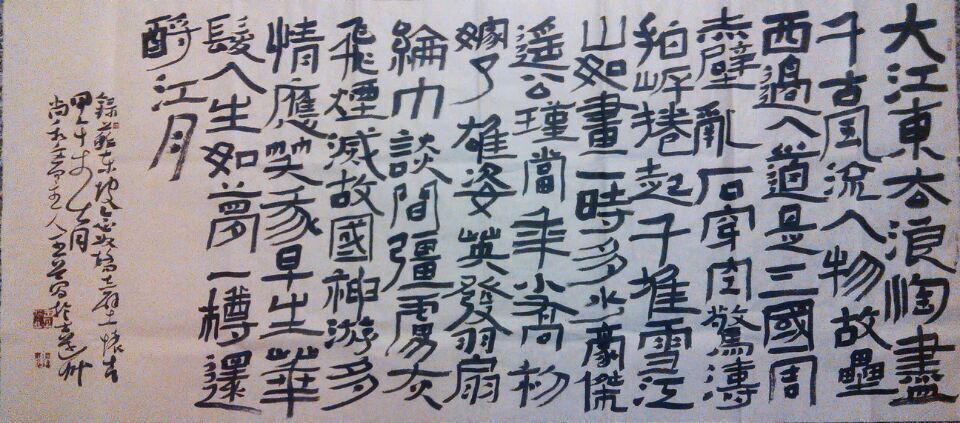 大江東去浪淘盡
千古風流人物故壘
西邊人道是三國周
赤壁亂石穿空驚濤
拍岸捲起千堆雪江
山如畫一時多少豪傑
遙公瑾當年小喬初
嫁了雄姿英發羽扇
綸巾談間彊虜灰
飛煙滅故國神游多
情應笑我早生華
髮人生如夢一樽還
酹江月
錄蘇東坡念奴嬌赤壁懷古
甲午月